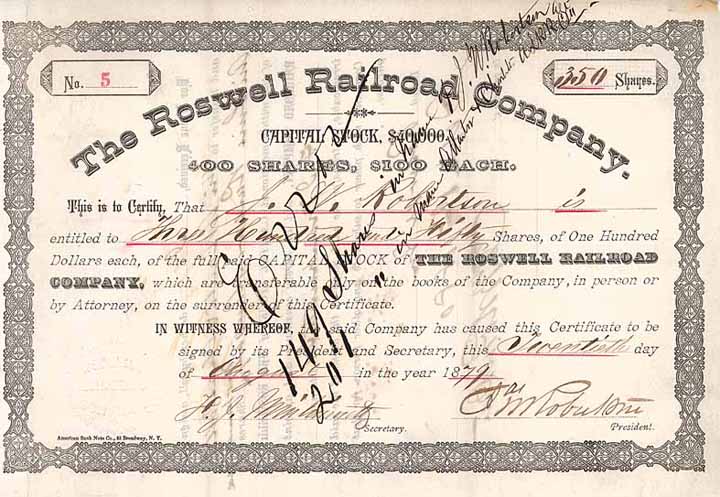 No. 5
350 Shares.
The Roswell Railroad Company.
CAPITAL STOCK, $40,000.
400 SHARES, $100 EACH.
This is to Certify, That J. W. Robertson is
entitled to Three Hundred and Fifty Shares, of One Hundred
Dollars each, of the full paid CAPITAL STOCK OF THE ROSWELL RAILROAD
COMPANY, which are transferable only on the books of the Company, in person or
by Attorney, on the surrender of this Certificate.
IN WITNESS WHEREOF, the said Company has caused this Certificate to be
signed by its President and Secretary, this Twentieth day
of August in the year 1879
Secretary.
President.
American Bank Note Co., 61 Broadway, N. Y.
149 Shares in name
201 " in name